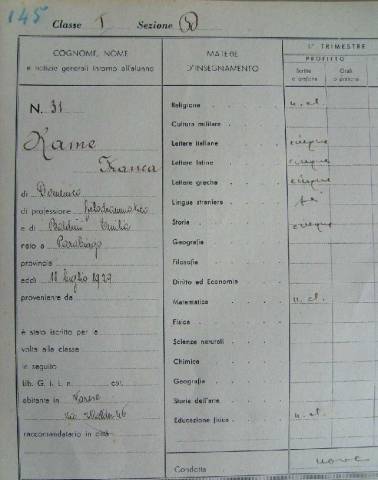 145
Classe I Sezione B
COGNOME, NOME
e notizie generali intorno all'alunno
N. 31
Rame
Franca
di Domenico
di professione filodrammatico
e di Baldini Emilia
nato a Parabiago
provincia
addì 18 luglio 1929
proveniente da
è stato iscritto per la
volta alla classe
in seguito
lib. G. I. L. n. cat.
abitante in Varese
via 46
raccomandatario in città
MATERIE
D'INSEGNAMENTO
Religione
Cultura militare
Lettere italiane
Lettere latine
Lettere greche
Lingue straniere
Storia
Geografia
Filosofia
Diritto ed Economia
Matematica
Fisica
Scienze naturali
Chimica
Geografia
Storia dell'arte
Educazione fisica
Condotta
1° TRIMESTRE
PROFITTO
Scritte o grafiche
Orali o pratiche
n. cl.
cinque
cinque
cinque
sei
cinque
n. cl.
n. cl.
nove